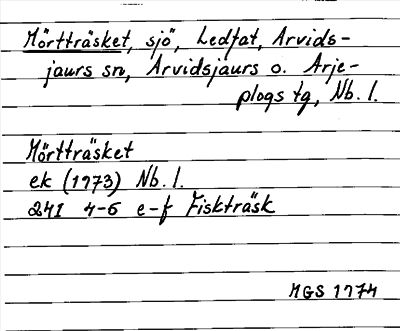 Mörtträsket, sjö, Ledfat, Arvids-
jaurs sn, Arvidsjaurs o. Arje-
plogs tg, Nb. l.
Mörtträsket
ek (1973) Nb. l.
24I 4-5 e-f Fiskträsk
MGS 1974